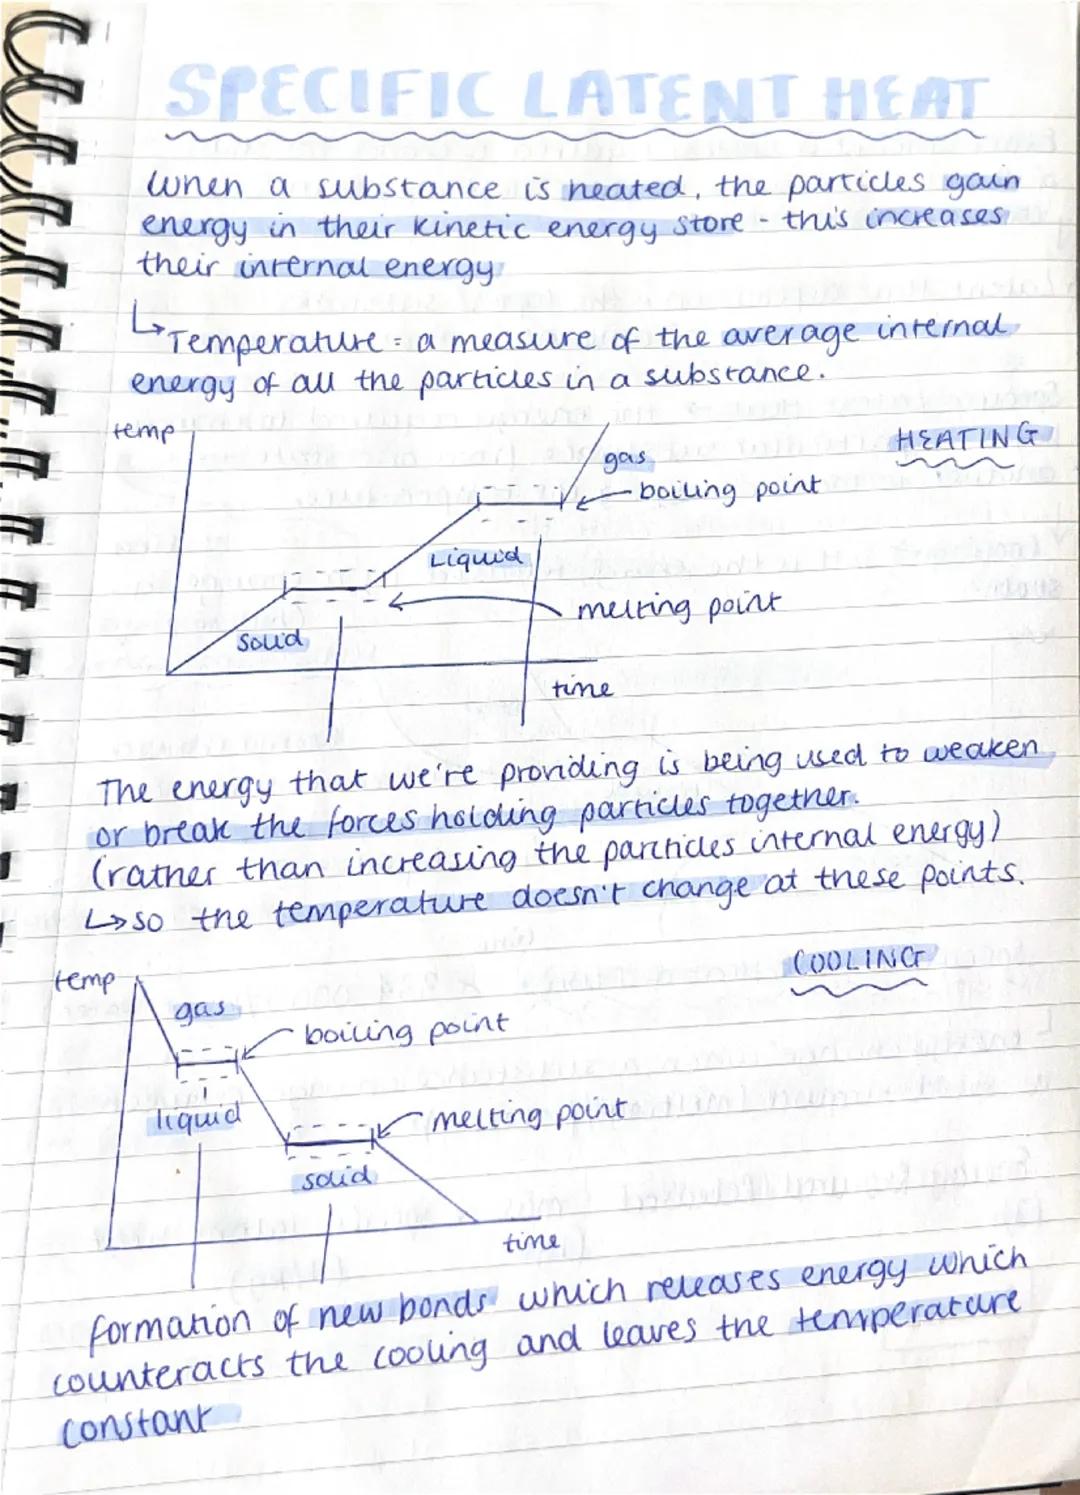 SPECIFIC LATENT HEAT
When a substance is heated, the particles gain
energy in their kinetic energy store - this increases
their internal energy
↳ Temperature = a measure of the average internal
energy of all the particles in a substance.
temp
HEATING
gas
boiling point
Liquid
melting point
solid
time
The energy that we're providing is being used to weaken
or break the forces holding particles together.
(rather than increasing the particles internal energy)
↳ so the temperature doesn't change at these points.
temp
COOLING
gas
boiling point
liquid
melting point
solid
time
formation of new bonds which releases energy which
counteracts the cooling and leaves the temperature
constant